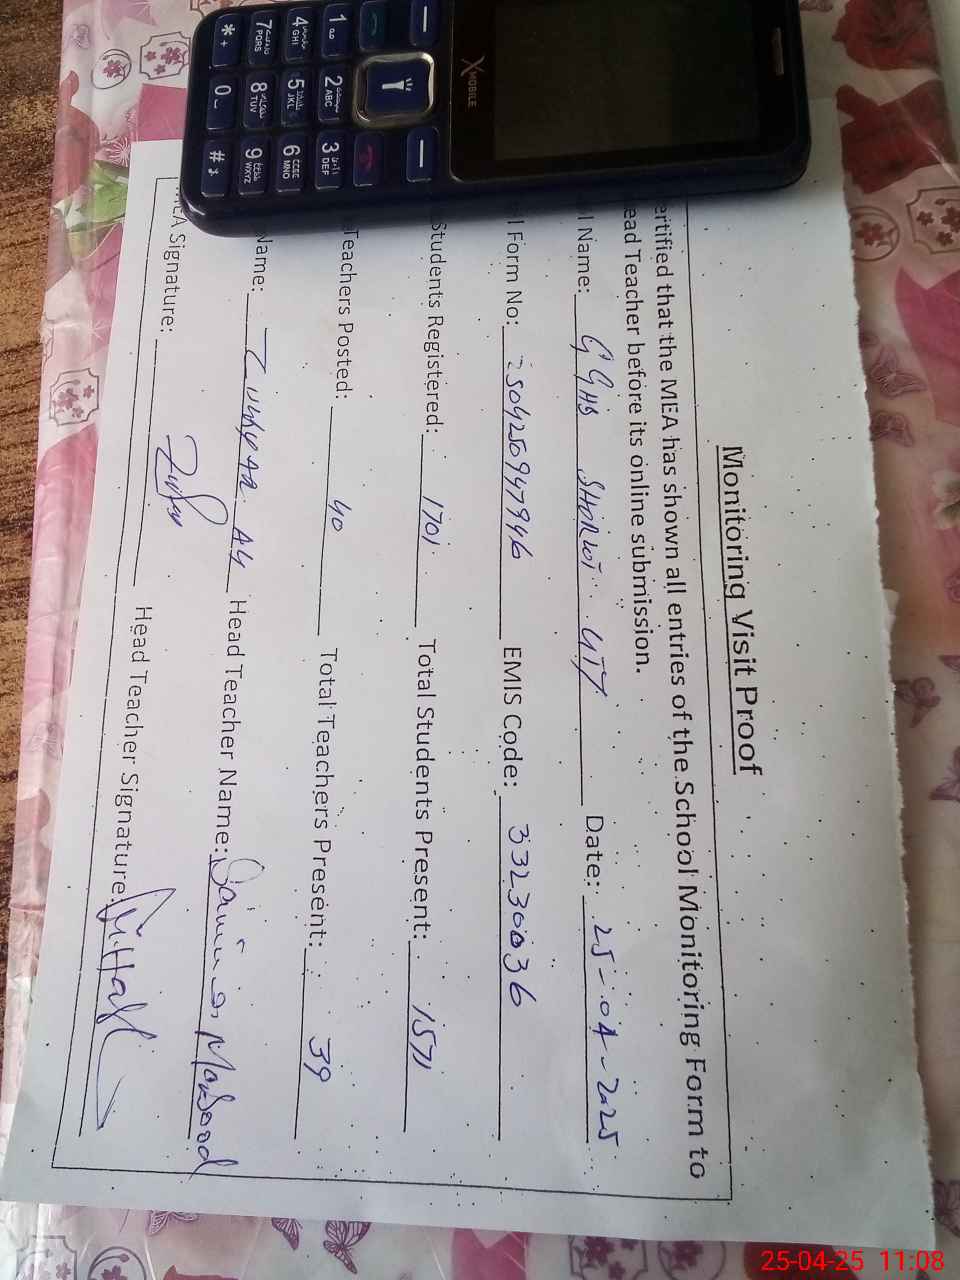 Monitoring Visit Proof
ertified that the MEA has shown all entries of the School Monitoring Form to
ead Teacher before its online submission.
l Name: GGHS Date: 25-04-2025
l Form No: 250425947946 EMIS Code: 33230036
Students Registered: 1701 Total Students Present: 1571
Teachers Posted: 40 Total Teachers Present: 39
Name: Head Teacher Name: Saima Maqsood
MEA Signature: Head Teacher Signature:
X MOBILE
1
2 ABC
3 DEF
4 GHI
5 JKL
6 MNO
7 PQRS
8 TUV
9 WXYZ
* +
0
#
25-04-25 11:08